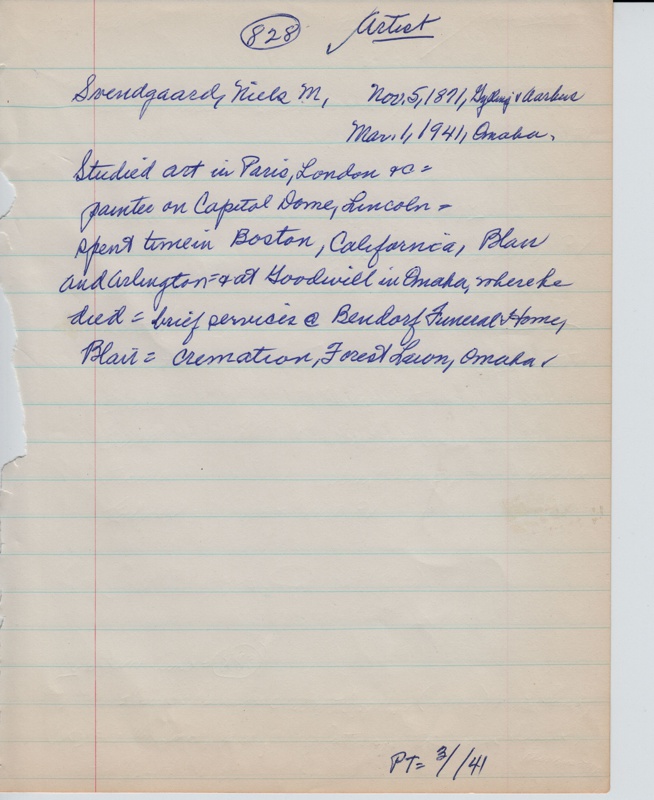 828 Artist
Svendgaard, Niels M, Nov. 5, 1871, Gyding v Aarhus
Mar. 1, 1941, Omaha.
Studied art in Paris, London &c =
painter on Capitol Dome, Lincoln =
spent time in Boston, California, Blair
and Arlington = & at Goodwill in Omaha, where he
died = brief services @ Bendorf Funeral Home,
Blair = Cremation, Forest Lawn, Omaha.
PT = 3/1/41